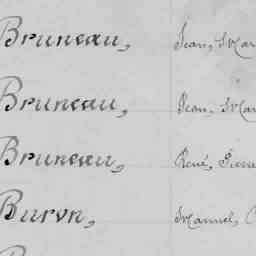 Bruneau, Jean, Mar
Bruneau, Jean, Mar
Bruneau, René, Pierre
Buron, Manuel,